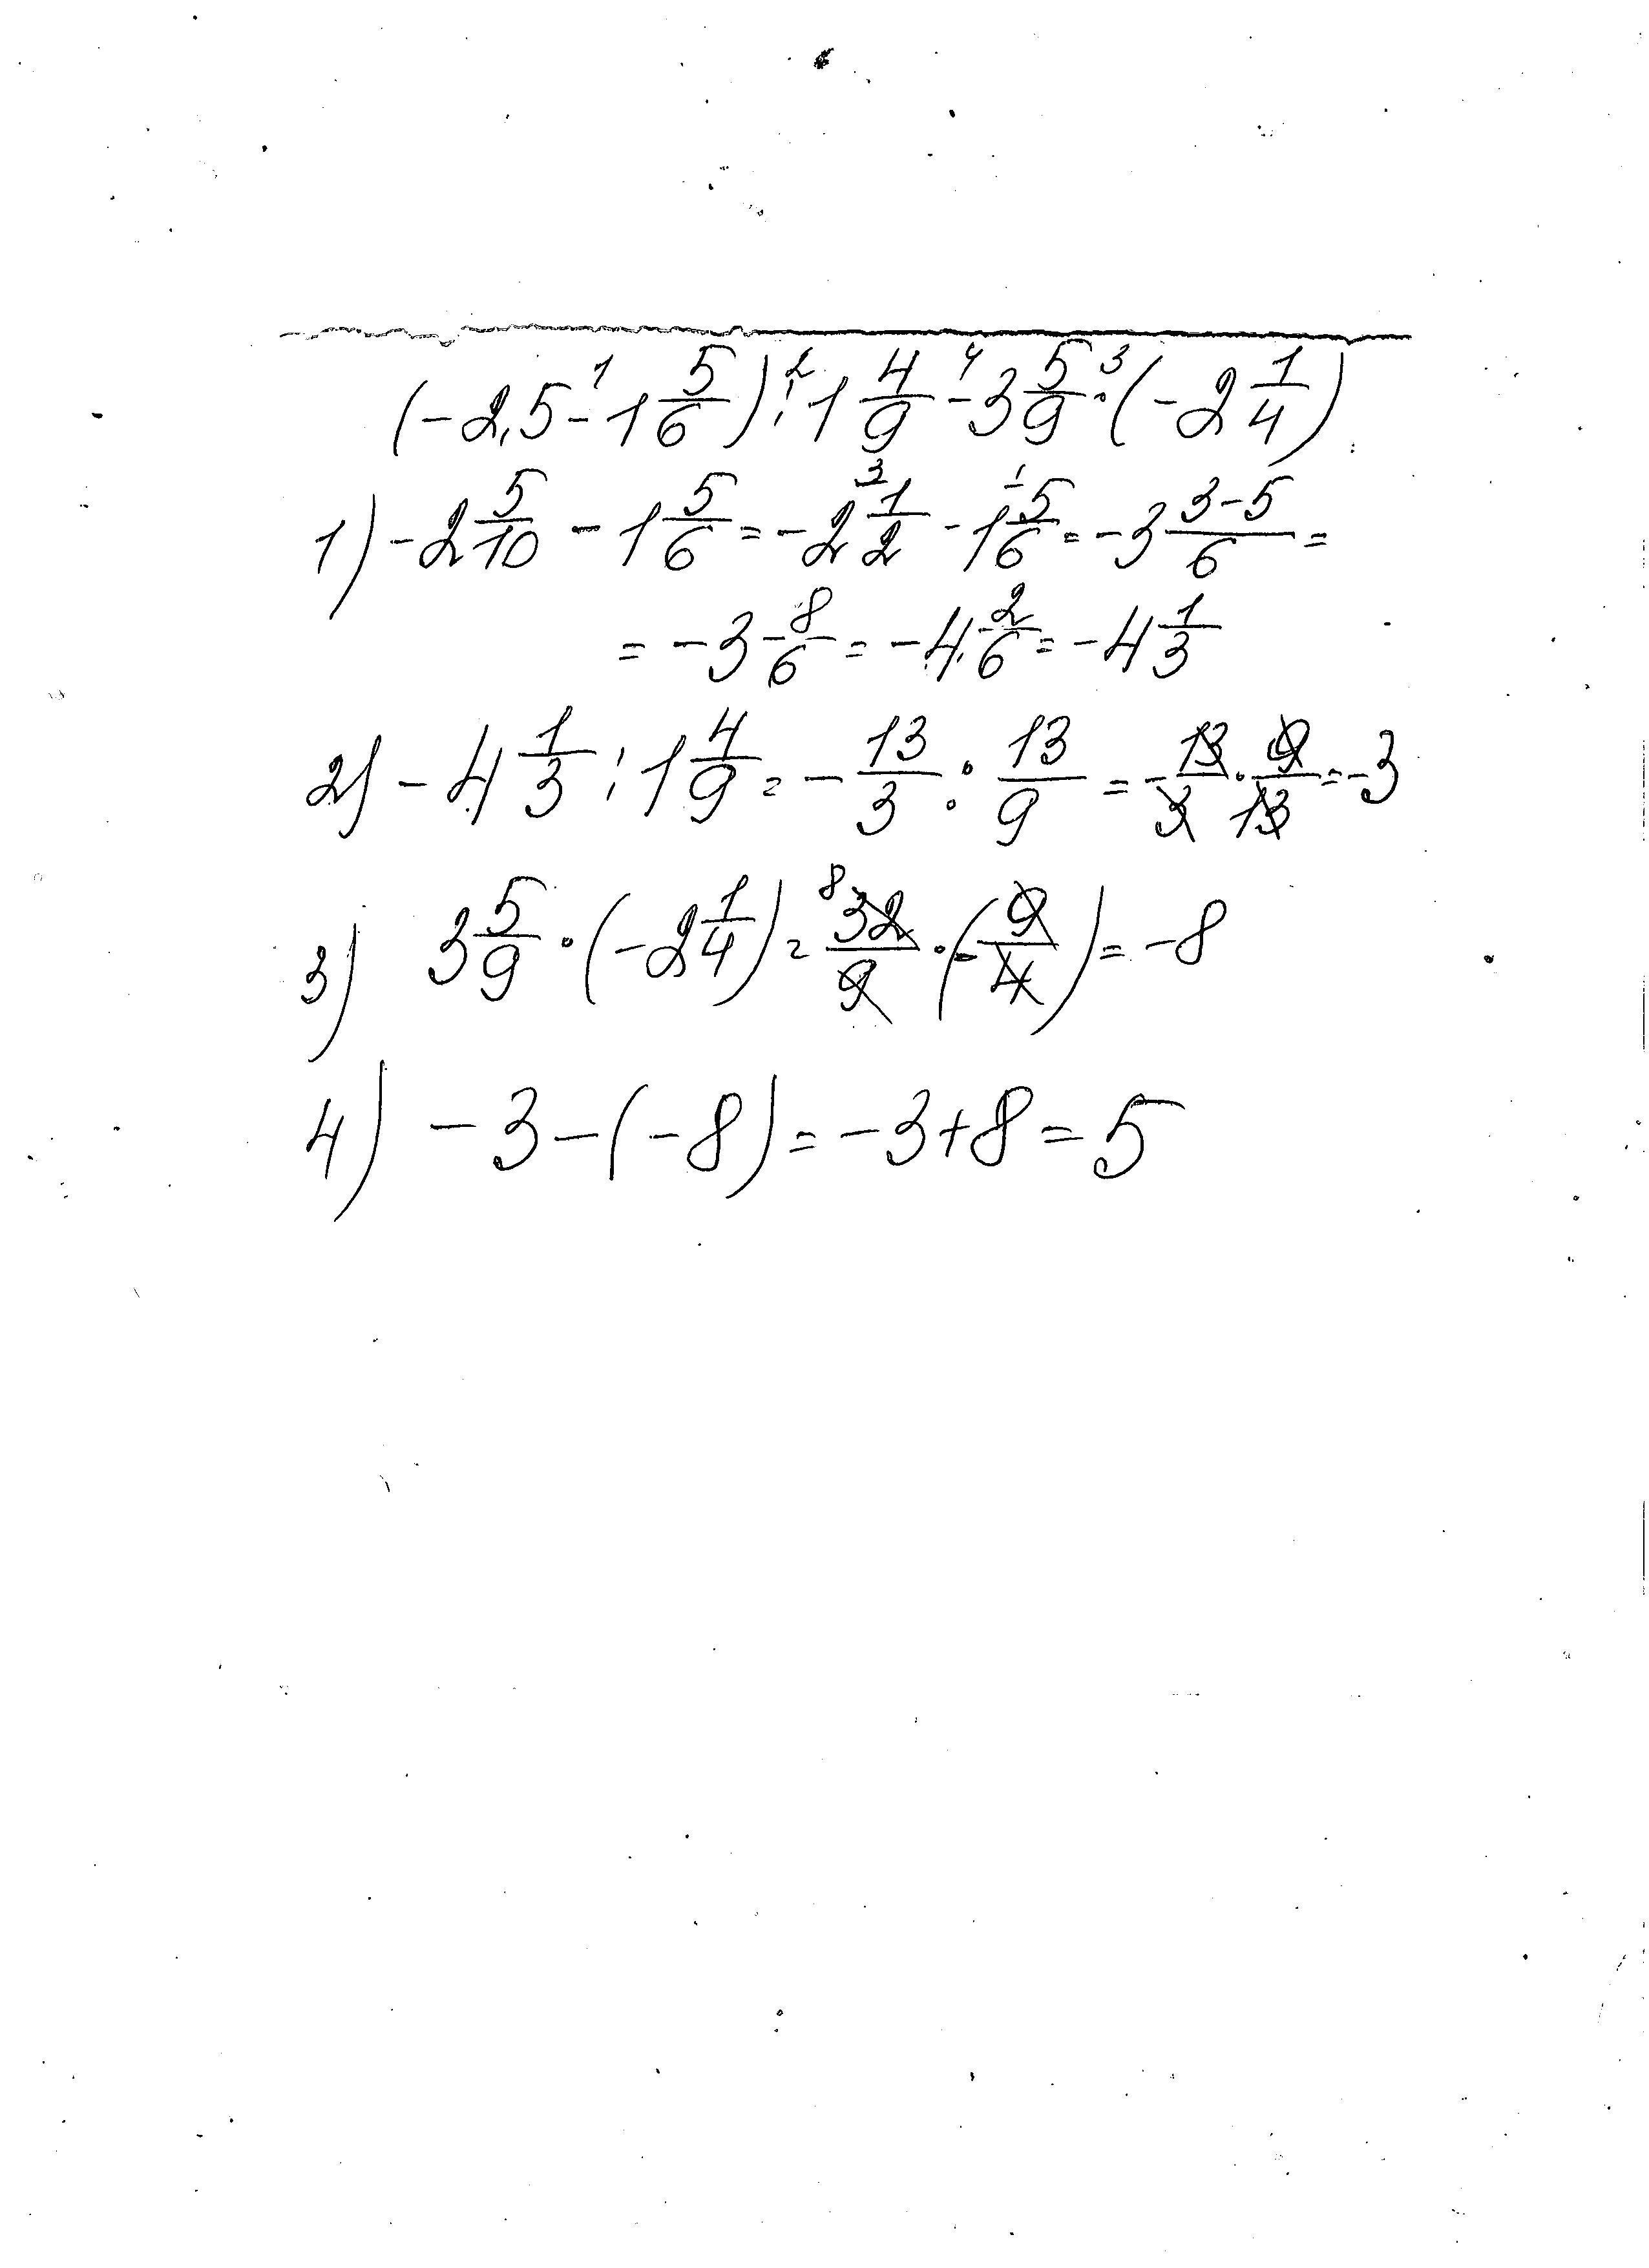 (-2,5 - 1 5/6) : 1 4/9 - 3 5/9 · (-2 1/4)
1) -2 5/10 - 1 5/6 = -2 1/2 - 1 5/6 = -3 (3-5)/6 =
= -3 8/6 = -4 2/6 = -4 1/3
2) -4 1/3 : 1 4/9 = -13/3 : 13/9 = -13/3 · 9/13 = -3
3) 3 5/9 · (-2 1/4) = 32/9 · (-9/4) = -8
4) -3 - (-8) = -3 + 8 = 5